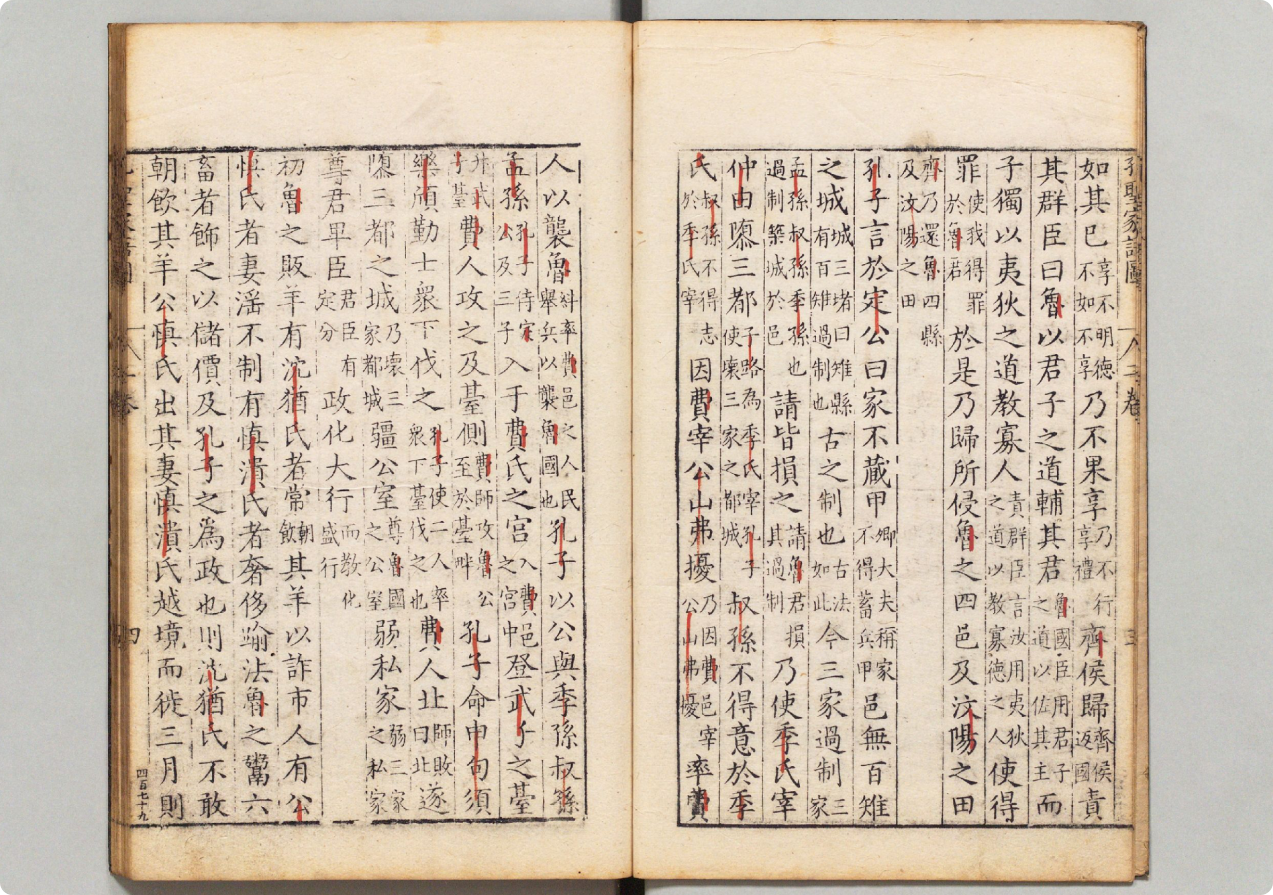 孔聖家語圖
如其已享不明德不如不享乃不果享乃不行享禮齊侯歸齊侯返國責
其群臣曰魯以君子之道輔其君魯國臣用君子之道以佐其主而
子獨以夷狄之道教寡人責群臣言汝用夷狄之道以教寡德之人使得
罪使我得罪於魯君於是乃歸所侵魯之四邑及汶陽之田
齊乃還魯四縣及汶陽之田
孔子言於定公曰家不藏甲卿大夫稱家不得蓄兵甲邑無百雉
之城城三堵曰雉縣有百雉過制也古之制也古法如此今三家過制三家
孟孫叔孫季孫也過制築城於邑請皆損之請魯君損其過制乃使季氏宰
仲由隳三都子路爲季氏宰孔子使壞三家之都城叔孫不得意於季
氏叔孫不得志於季氏宰因費宰公山弗擾乃因費邑宰公山弗擾率費
人以襲魯糾率費邑之人民舉兵以襲魯國也孔子以公與季孫叔孫
孟孫孔子待定公及三子入于費氏之宮入費邑之宮中登武子之臺
升武子臺費人攻之及臺側費師攻魯公至於臺畔孔子命申句須
樂頎勤士衆下伐之孔子使二人率衆下臺伐之也費人北師敗曰北遂
隳三都之城乃壞三家都城彊公室尊魯國之公室弱私家弱三家之私家
尊君卑臣君臣有定分政化大行而教化盛行
初魯之販羊有沈猶氏者常朝飲其羊以詐市人有公
慎氏者妻淫不制有慎潰氏者奢侈踰法魯之鬻六
畜者飾之以儲價及孔子之爲政也則沈猶氏不敢
朝飲其羊公慎氏出其妻慎潰氏越境而徙三月則
四
四百七十九